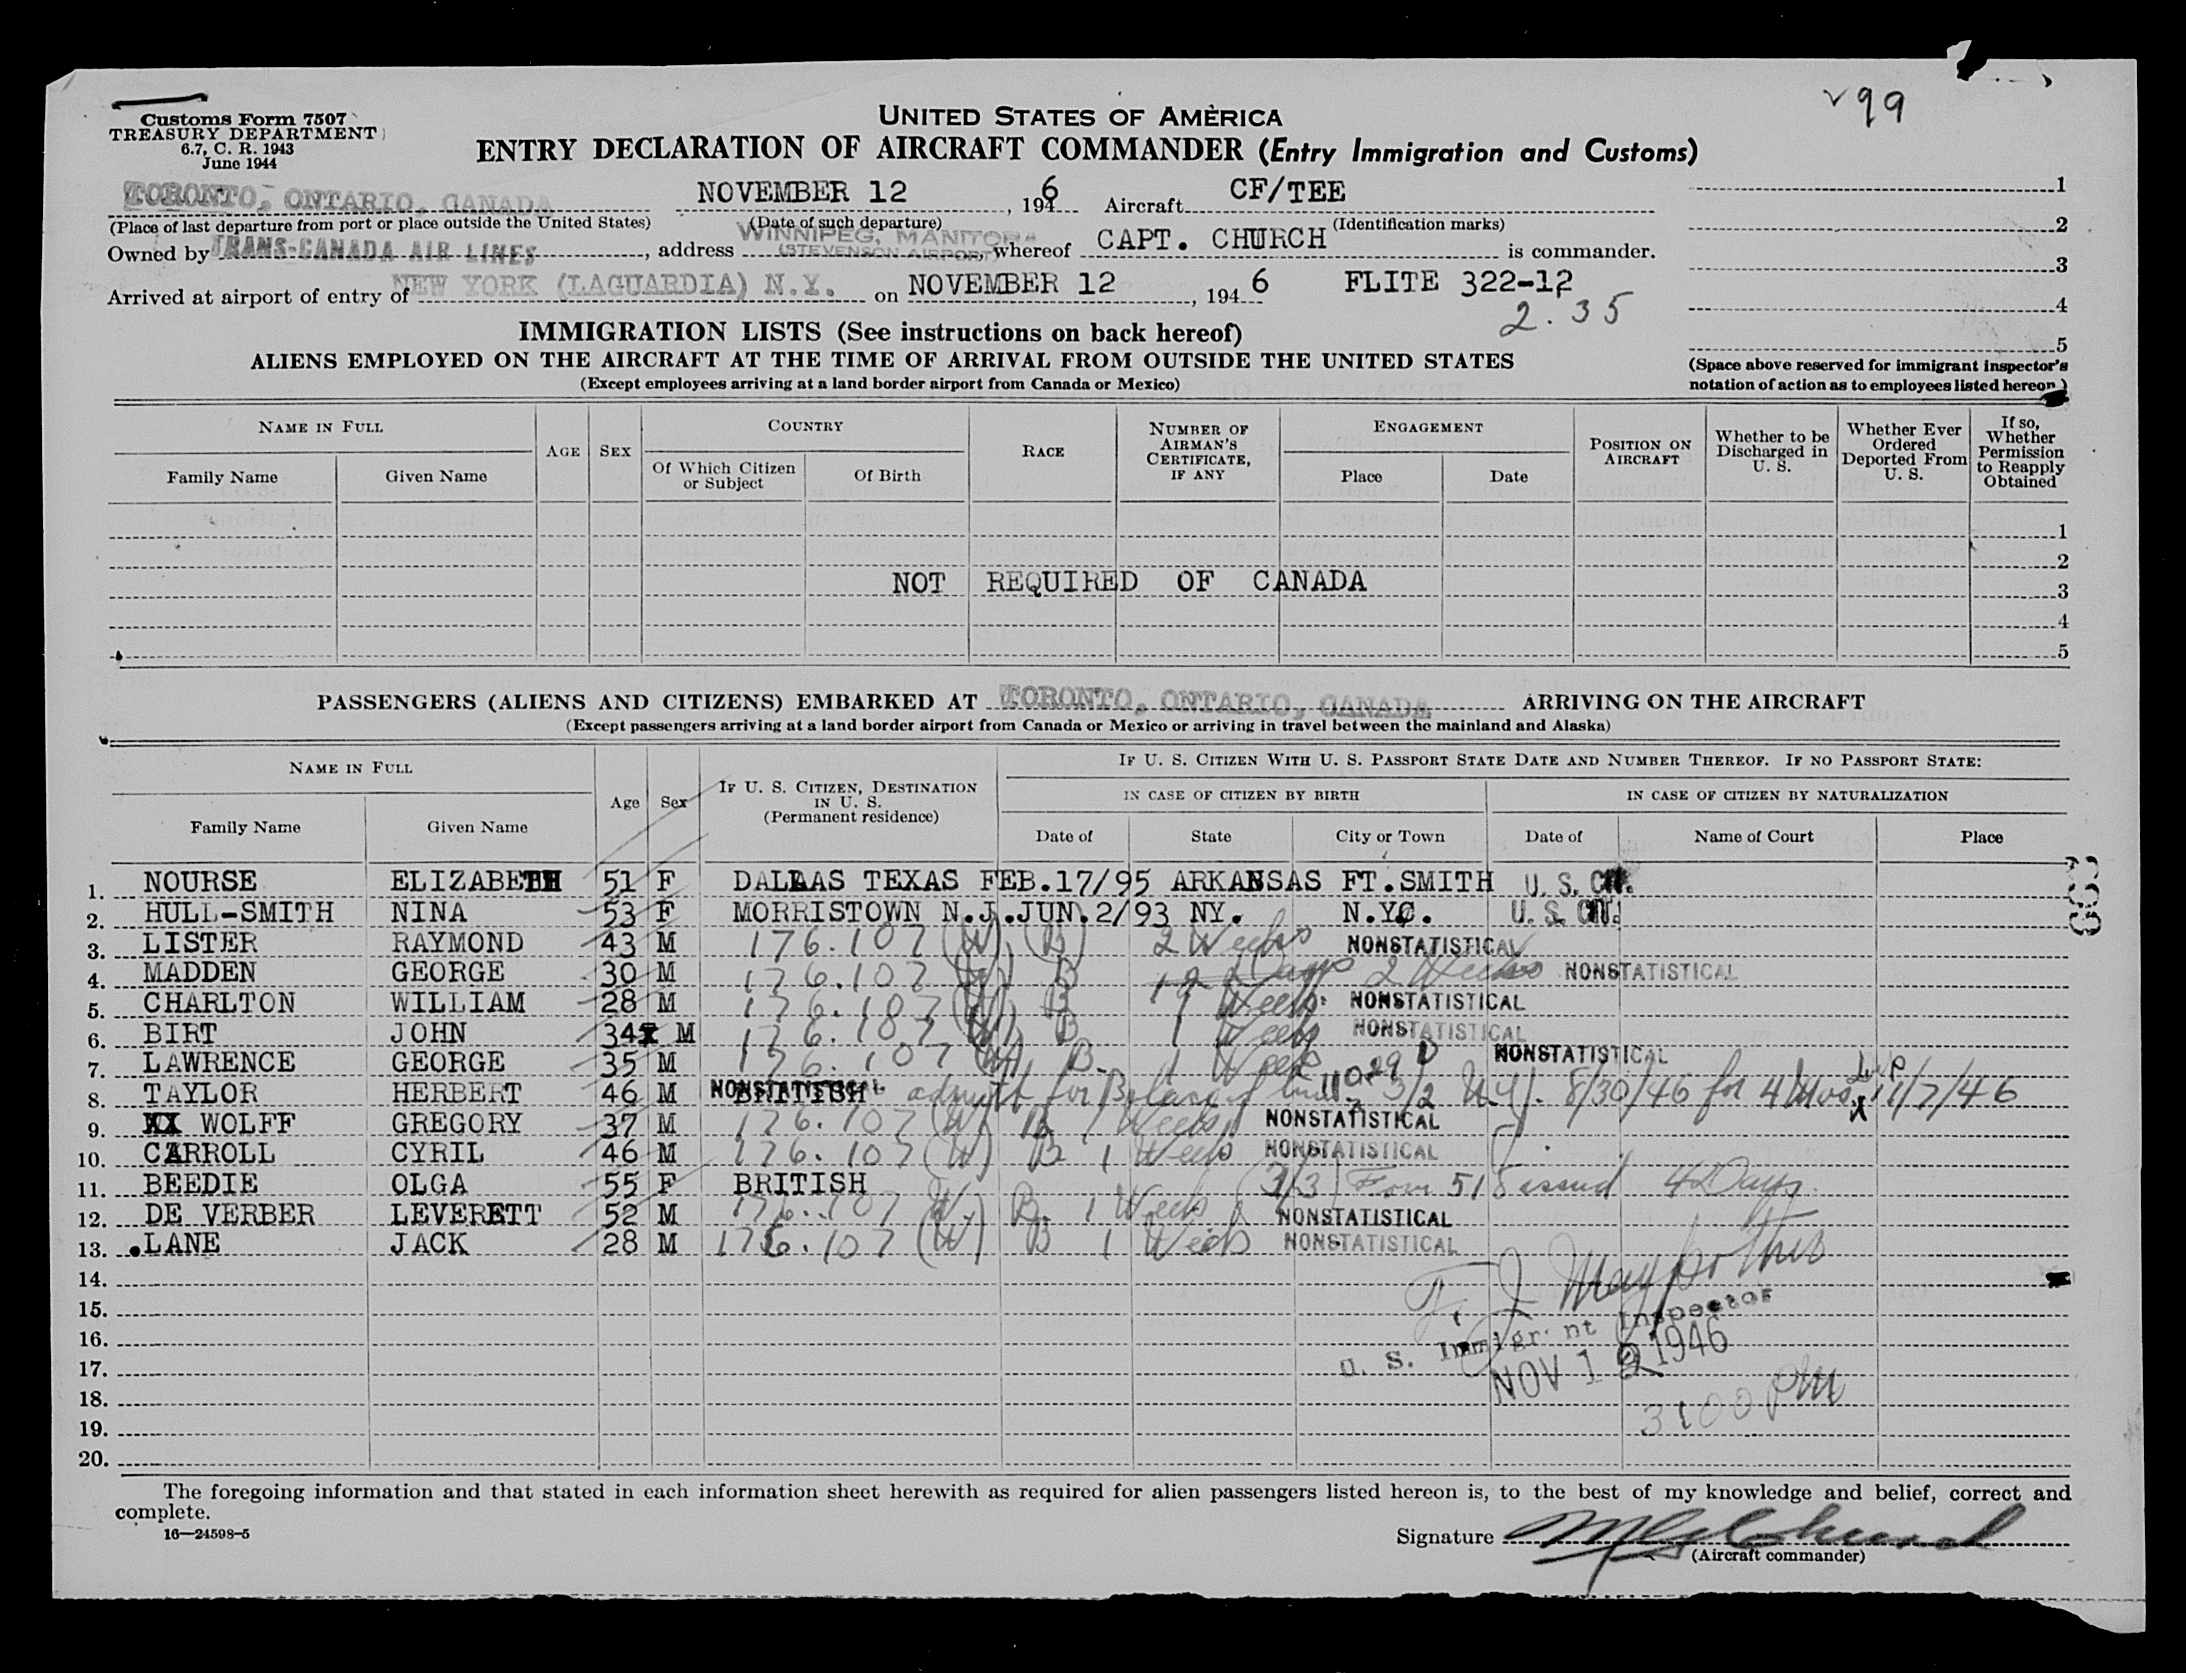 v 99
Customs Form 7507
TREASURY DEPARTMENT
6.7, C. R. 1943
June 1944
UNITED STATES OF AMERICA
ENTRY DECLARATION OF AIRCRAFT COMMANDER (Entry Immigration and Customs)
TORONTO, ONTARIO, CANADA NOVEMBER 12, 1946 Aircraft CF/TEE 1
(Place of last departure from port or place outside the United States) (Date of such departure) (Identification marks) 2
WINNIPEG, MANITOBA
Owned by TRANS-CANADA AIR LINES, address (STEVENSON AIRPORT), whereof CAPT. CHURCH is commander.
3
Arrived at airport of entry of NEW YORK (LAGUARDIA) N.Y. on NOVEMBER 12, 1946 FLITE 322-12
2.35 4
IMMIGRATION LISTS (See instructions on back hereof) 5
ALIENS EMPLOYED ON THE AIRCRAFT AT THE TIME OF ARRIVAL FROM OUTSIDE THE UNITED STATES
(Except employees arriving at a land border airport from Canada or Mexico)
(Space above reserved for immigrant inspector's
notation of action as to employees listed hereon)
NAME IN FULL
Family Name Given Name
AGE SEX
COUNTRY
Of Which Citizen or Subject Of Birth
RACE
NUMBER OF AIRMAN'S CERTIFICATE, IF ANY
ENGAGEMENT
Place Date
POSITION ON AIRCRAFT
Whether to be Discharged in U. S.
Whether Ever Ordered Deported From U. S.
If so, Whether Permission to Reapply Obtained
1
2
NOT REQUIRED OF CANADA 3
4
5
PASSENGERS (ALIENS AND CITIZENS) EMBARKED AT TORONTO, ONTARIO, CANADA ARRIVING ON THE AIRCRAFT
(Except passengers arriving at a land border airport from Canada or Mexico or arriving in travel between the mainland and Alaska)
NAME IN FULL
Family Name Given Name
Age Sex
IF U. S. CITIZEN, DESTINATION IN U. S. (Permanent residence)
IF U. S. CITIZEN WITH U. S. PASSPORT STATE DATE AND NUMBER THEREOF. IF NO PASSPORT STATE:
IN CASE OF CITIZEN BY BIRTH IN CASE OF CITIZEN BY NATURALIZATION
Date of State City or Town Date of Name of Court Place
1. NOURSE ELIZABETH 51 F DALLAS TEXAS FEB.17/95 ARKANSAS FT.SMITH U. S. CIT.
2. HULL-SMITH NINA 53 F MORRISTOWN N.J.JUN.2/93 NY. N.Y.C. U. S. CIT.
3. LISTER RAYMOND 43 M 176.107 (W) (B) 2 Weeks NONSTATISTICAL
4. MADDEN GEORGE 30 M 176.107 (W) B 2 Days 2 Weeks NONSTATISTICAL
5. CHARLTON WILLIAM 28 M 176.107 (W) B 1 Week NONSTATISTICAL
6. BIRT JOHN 34 M 176.107 (W) B 1 Week NONSTATISTICAL
7. LAWRENCE GEORGE 35 M 176.107 (W) B. 1 Week NONSTATISTICAL
8. TAYLOR HERBERT 46 M NONSTATISTICAL BRITISH admitt for Balance of time 3/2 N.Y. 8/30/46 for 4 Mos. 11/7/46
9. XX WOLFF GREGORY 37 M 176.107 (W) B 1 Week NONSTATISTICAL
10. CARROLL CYRIL 46 M 176.107 (W) B 1 Week NONSTATISTICAL
11. BEEDIE OLGA 55 F BRITISH (3/3) Form 518 issued 42 Days
12. DE VERBER LEVERETT 52 M 176.107 (W) B 1 Week NONSTATISTICAL
13. LANE JACK 28 M 176.107 (W) B 1 Week NONSTATISTICAL
14.
15.
U. S. Immigrant Inspector
16.
NOV 12 1946
17.
18.
3:00 PM
19.
20.
The foregoing information and that stated in each information sheet herewith as required for alien passengers listed hereon is, to the best of my knowledge and belief, correct and
complete.
16—24598-5
Signature
(Aircraft commander)